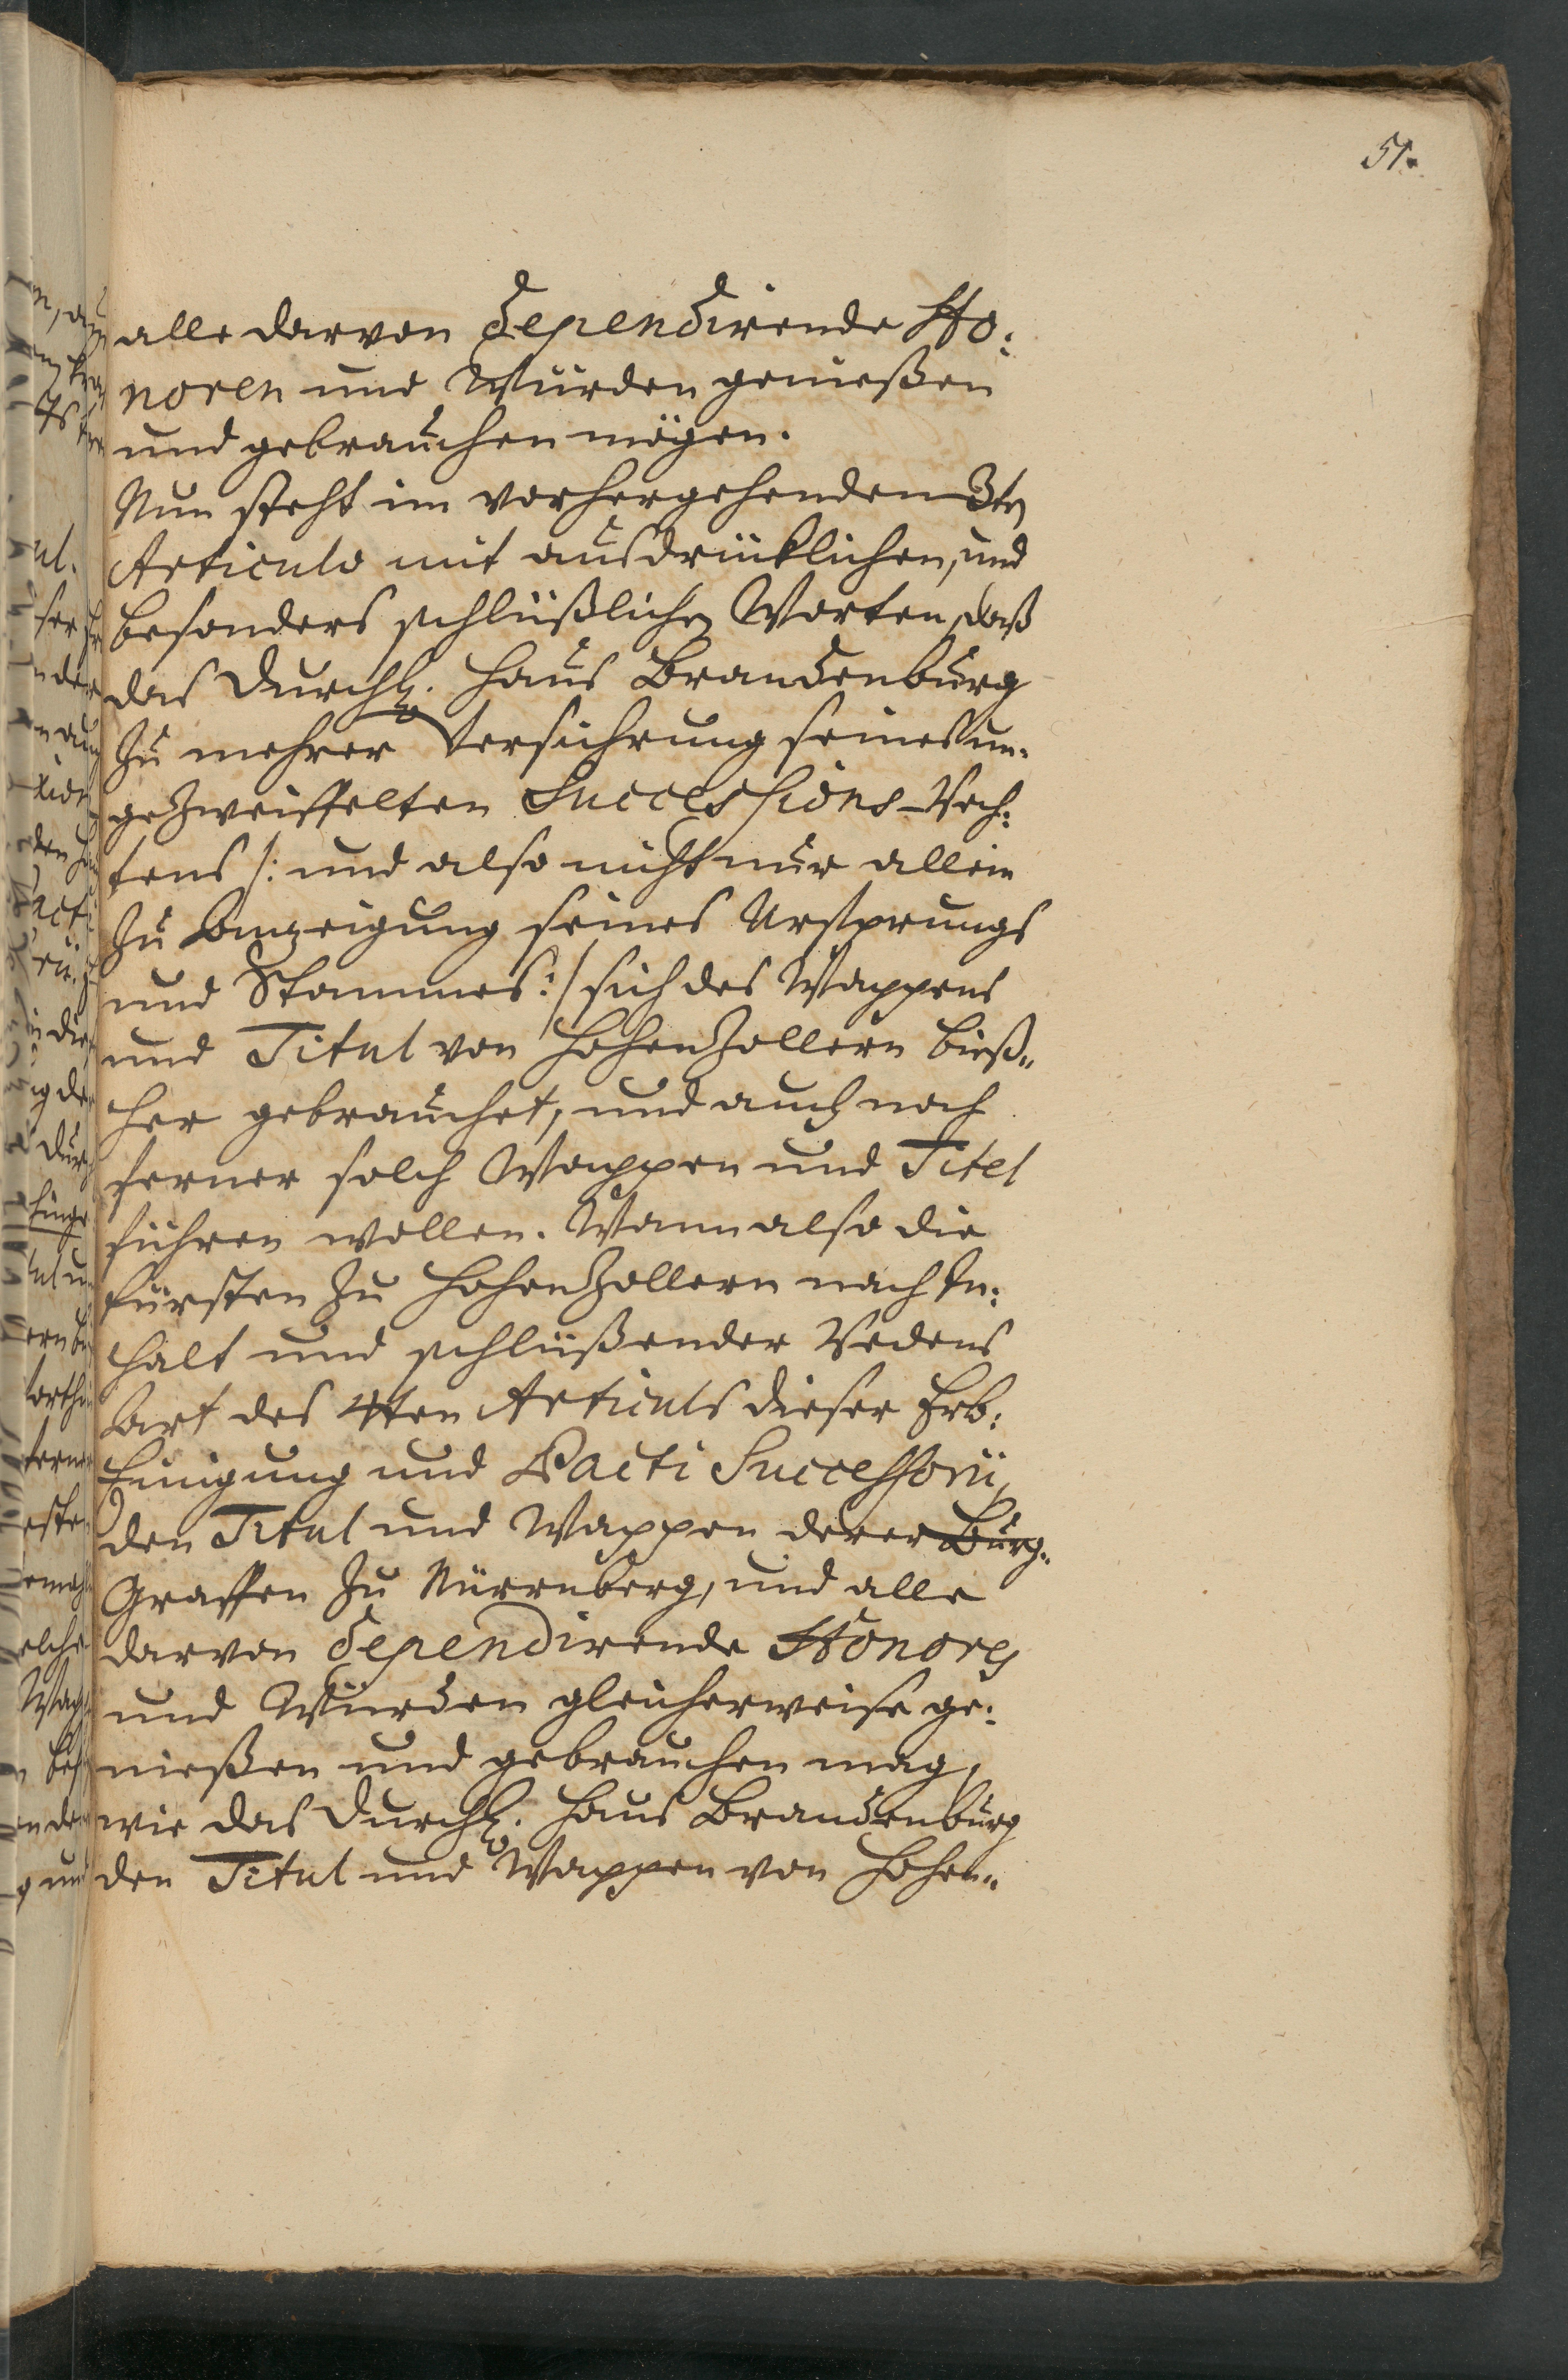 51.
alle darvon dependirende Ho:
noren und Würden genießen
und gebrauchen mögen.
Nun steht im vorhergehenden 3ten
Articulo mit ausdrücklichen, und
besonders schlüßlichen Worten, daß
das Durchl. Haus Brandenburg
zu mehrer Versicherung seines un-
gezweiffelten Successions-Rech:
tens /: und also nicht nur allein
zu Anzeigung seines Ursprungs
und Stammes :/ sich des Wappens
und Titul von Hohenzollern bieß„
her gebrauchet, und auch noch
ferner solch Wappen und Titel
führen wollen. Wann also die
Fürsten zu Hohenzollern nach In:
halt und schlüßender Redens
Art des 4ten Articuls dieser Erb:
Einigung und Pacti Successorii,
den Titul und Wappen derer Burg„
Graffen zu Nürrnberg, und alle
darvon dependirende Honores
und Würden gleicherweise ge:
nießen und gebrauchen mag,
wie das Durchl. Haus Brandenburg
den Titul und Wappen von Hohen„